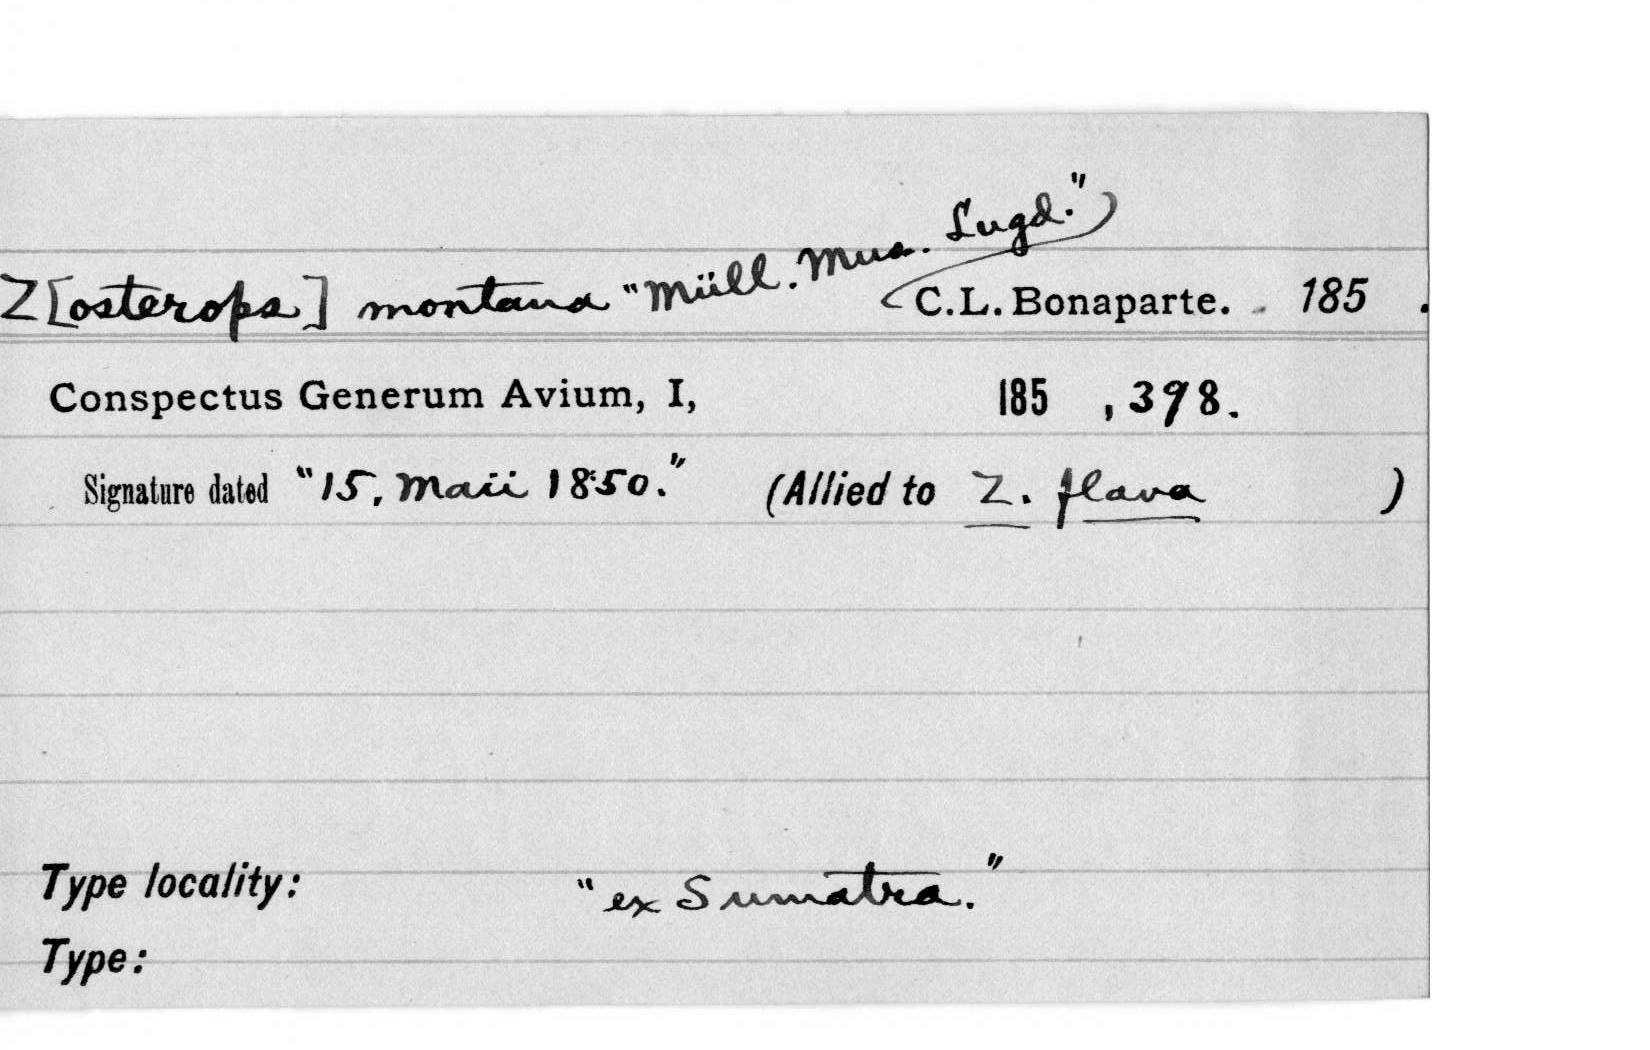 Z[osterops] montana "Müll. Mus. Lugd." C.L. Bonaparte. 185 .
Conspectus Generum Avium, I, 185 , 398.
Signature dated "15, Maii 1850." (Allied to Z. flava )
Type locality: "ex Sumatra."
Type: